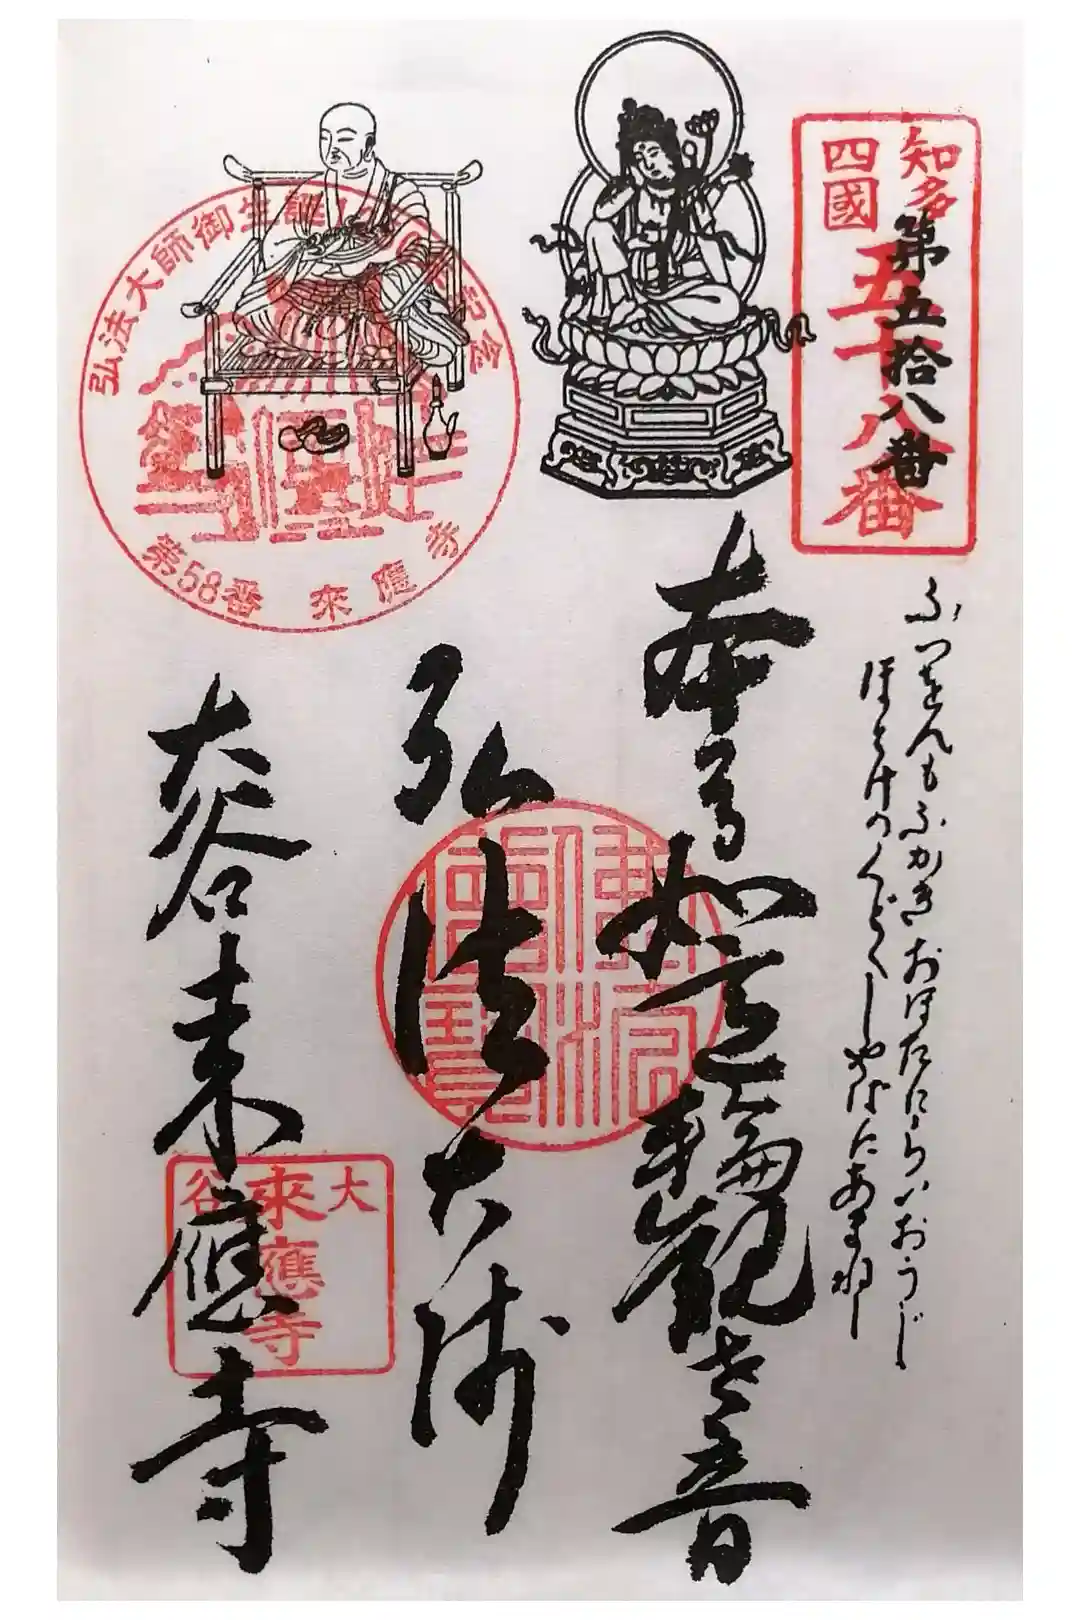 知多
四國
五十八番
第五拾八番
ぶつをんもふかきおほたにらいおうじ
ほとけのくどくしやばにあまねし
本尊如意輪觀世音
弘法大師
大谷来應寺
弘法大師御生誕
記念
第58番 來應寺
佛法僧寶
大谷
來應寺